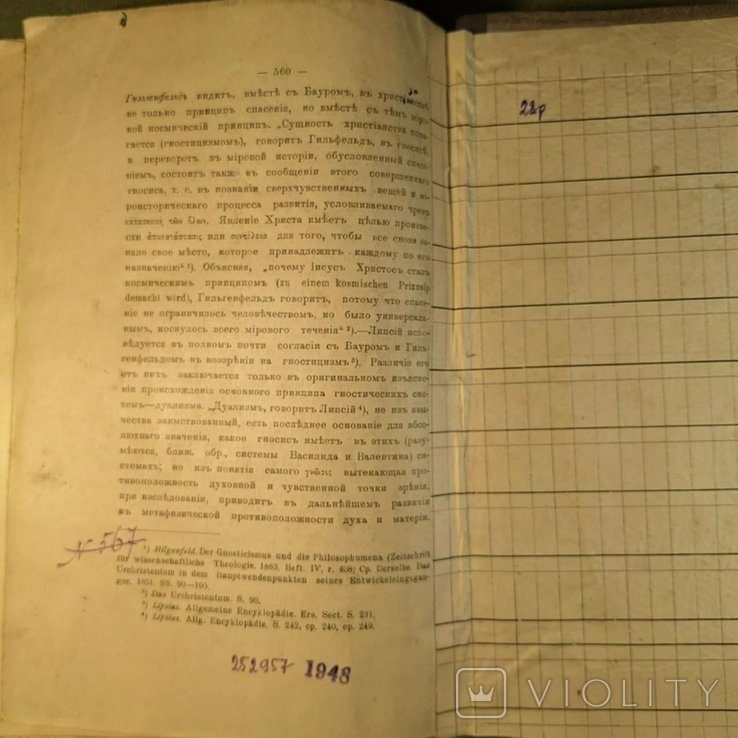 — 560 —
Гильгенфельдъ видитъ, вмѣстѣ съ Бауромъ, въ
не только принципъ спасенія, но вмѣстѣ съ тѣмъ
вой космическій принципъ. „Сущность христіанства
гается (гностицизмомъ), говоритъ Гильфельдъ, въ
къ переворотъ въ міровой исторіи, обусловленный
ніемъ, состоитъ также въ сообщеніи этого совершеннаго
гносиса, т. е. въ познаніи сверхчувственныхъ вещей и
роисторическаго процесса развитія, условливаемаго
τῶν ὅλων. Явленіе Христа имѣетъ цѣлью произве-
сти ἀποκατάστασις или συντέλεια для того, чтобы все снова за-
няло свое мѣсто, которое принадлежитъ каждому по его
назначенію“ ¹). Объясняя, „почему Іисусъ Христосъ сталъ
космическимъ принципомъ (zu einem kosmischen Prinzip
demacht wird), Гильгенфельдъ говоритъ, потому что спасе-
ніе не ограничилось человѣчествомъ, но было универсаль-
нымъ, коснулось всего мірового теченія“ ²).—Липсій
въ полномъ почти согласіи съ Бауромъ и Гиль-
генфельдомъ въ воззрѣніи на гностицизмъ ³). Различіе его
отъ нихъ заключается только въ оригинальномъ изъясне-
ніи происхожденія основного принципа гностическихъ сис-
темъ—дуализма. „Дуализмъ, говоритъ Липсій ⁴), не изъ язы-
чества заимствованный, есть послѣднее основаніе для абсо-
лютнаго значенія, какое гносисъ имѣетъ въ этихъ (разу-
мѣются, ближ. обр., системы Василида и Валентина) си-
стемахъ; но изъ понятія самого γνῶσις вытекающая про-
тивоположность духовной и чувственной точки зрѣнія,
при наслѣдованіи, приводитъ въ дальнѣйшемъ развитіи
къ метафизической противоположности духа и матеріи.
N 567
¹) Hilgenfeld. Der Gnosticismus und die Philosophumena (Zeitschrift
für wissenschaftliche Theologie. 1863. Heft. IV, r. 408; Ср. Derselbe. Das
Urchristentum in dem Hauptwendenpunkten seines Entwickeleingsgan-
ges. 1851. SS. 90—105.
²) Das Urchristentum. S. 90.
³) Lipsius. Allgemeine Encyklopädie. Ers. Sect. S. 231.
⁴) Lipsius. Allg. Encyklopädie. S. 242, ср. 240, ср. 249.
252957 1948
22р
VIOLITY